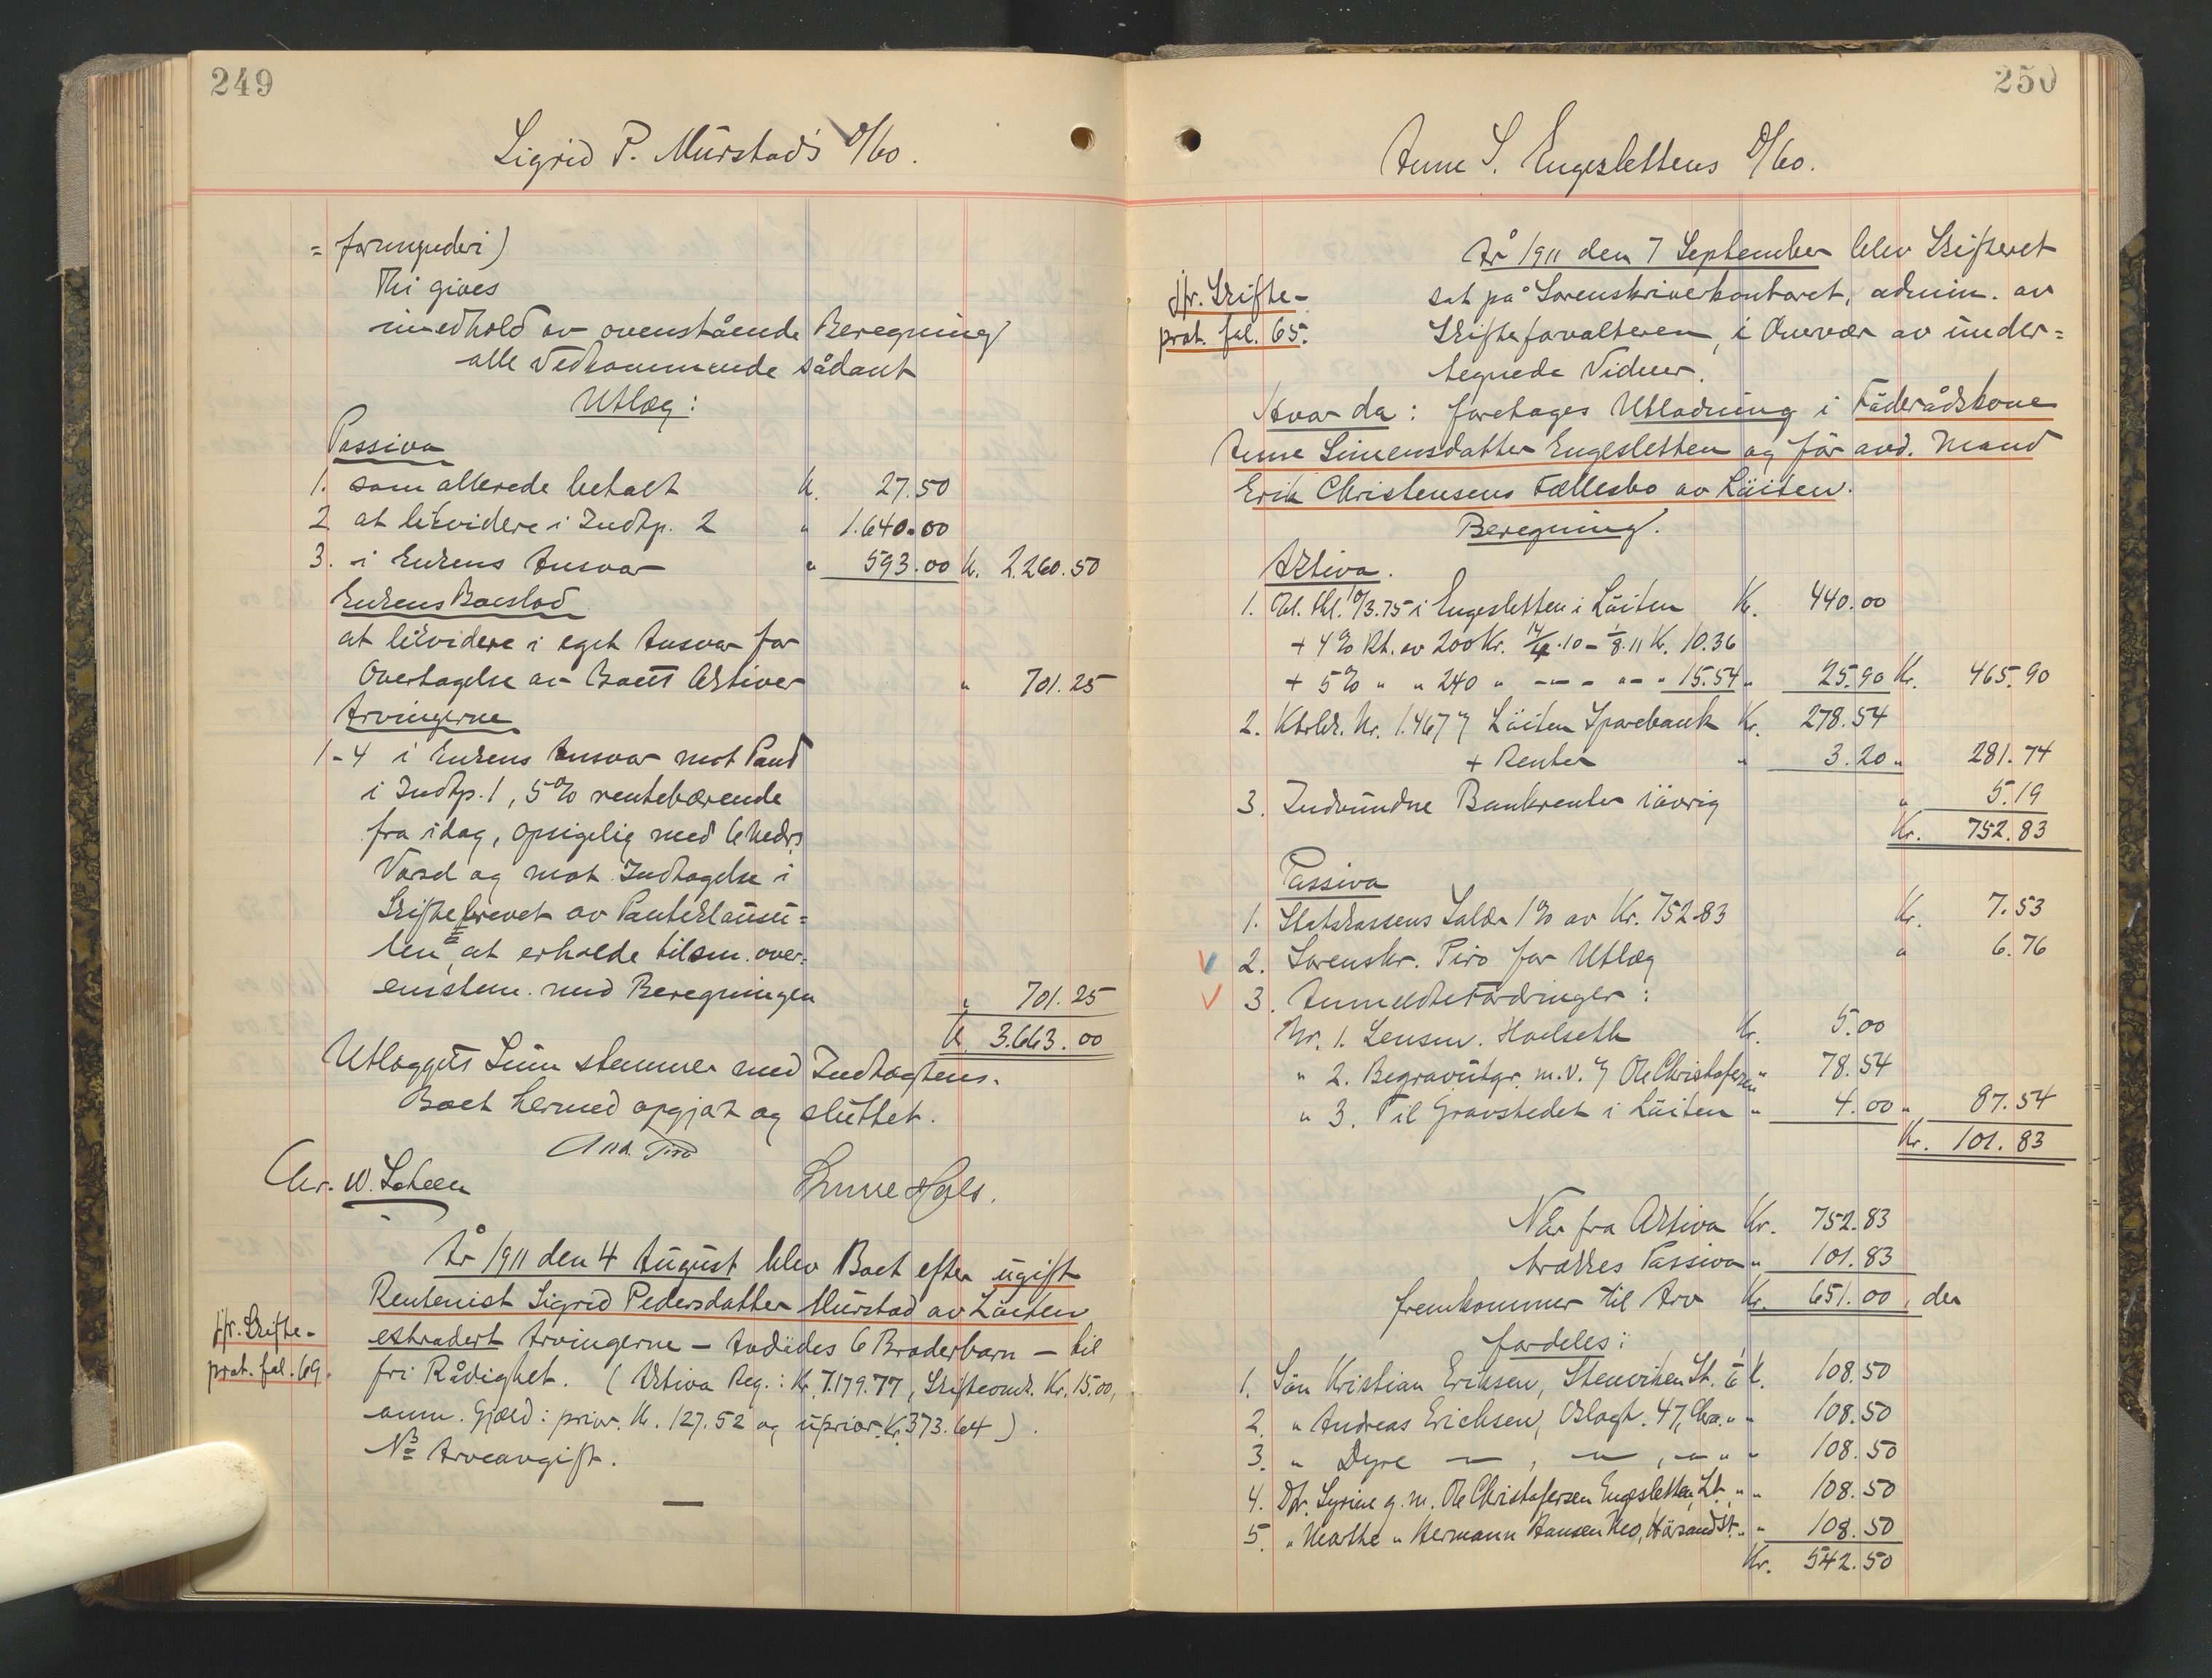 249
Sigrid P. Mürstad's D/bo.
= formynderi)
Thi gives
i medhold av ovenstående Beregning
alle Vedkommende sådant
Utlæg:
Passiva
1. som allerede betalt K. 27.50
2 at likvidere i Indtp. 2 " 1.640.00
3. i Enkens Ansvar " 593.00 K. 2.260.50
Enkens Boeslod
at likvidere i eget Ansvar for
Overtagelse av Boets Aktiver " 701.25
Arvingerne
1-4 i Enkens Ansvar mot Pant
i Indtp. 1, 5% rentebærende
fra idag, opsigelig med 6 Mdrs
Varsel og mot Indtagelse i
Skiftebrevet av Panteklausu=
len, at erholde tilsm. over=
enstem. med Beregningen " 701.25
K. 3.663.00
Utlæggets Sum stemmer med Indtægtens.
Boet hermed opgjort og sluttet.
And. Piro
Chr. W. Scheen
År 1911 den 4 August blev Boet efter ugift
Rentenist Sigrid Pedersdatter Mürstad av Löiten
jfr. Skifte-
prot. fol. 69.
extradert Arvingerne – Avdödes 6 Broderbarn – til
fri Rådighet. (Aktiva Reg.: Kr. 7.179.77, Skifteomk. Kr. 15.00,
anm. Gjæld: prior. K. 127.52 og uprior. Kr. 373.64).
NB Arveavgift.
—
250
Anne S. Engeslettens D/bo.
År 1911 den 7 September blev Skifteret
jfr. Skifte-
prot. fol. 65.
sat på Sorenskriverkontoret, admin. av
Skifteforvalteren, i Overvær av under=
tegnede Vidner.
Hvor da: foretages Utlodning i Föderådskone
Anne Simensdatter Engesletten og för avd. Mand
Erik Christensens Fællesbo av Löiten.
Beregning.
Aktiva.
1. Obl. thl. 10/3.75 i Engesletten i Löiten Kr. 440.00
+ 4% Rt. av 200 Kr. 14/4.10 – 1/8.11 K. 10.36
+ 5% " " 240 " — " — " 15.54 " 25.90 Kr. 465.90
2. Ktrbk. Nr. 1.467 Löiten Sparebank Kr. 278.54
+ Renter " 3.20 " 281.74
3. Indvundne Bankrenter iövrig " 5.19
Kr. 752.83
Passiva
1. Statskassens Salær 1% av Kr. 752.83 Kr. 7.53
2. Sorenskr. Piro for Utlæg " 6.76
3. Anmeldte Fordringer:
Nr. 1. Lensm. Hoelseth Kr. 5.00
" 2. Begravutgr. m.v. Ole Christofersen " 78.54
" 3. Til Gravstedet i Löiten " 4.00 " 87.54
Kr. 101.83
Når fra Aktiva Kr. 752.83
trækkes Passiva " 101.83
fremkommer til Arv Kr. 651.00, der
fordeles:
1. Sön Kristian Eriksen, Stenviken St. 1/6 K. 108.50
2. " Andreas Erichsen, Oslogt. 47, Chra. " " 108.50
3. " Dyre — " — , — " — , — " — " " 108.50
4. Dtr. Syrine g. m. Ole Christofersen Engesletten, Lt. " " 108.50
5. " Marthe " Hermann Hansen Mo, " " 108.50
Kr. 542.50